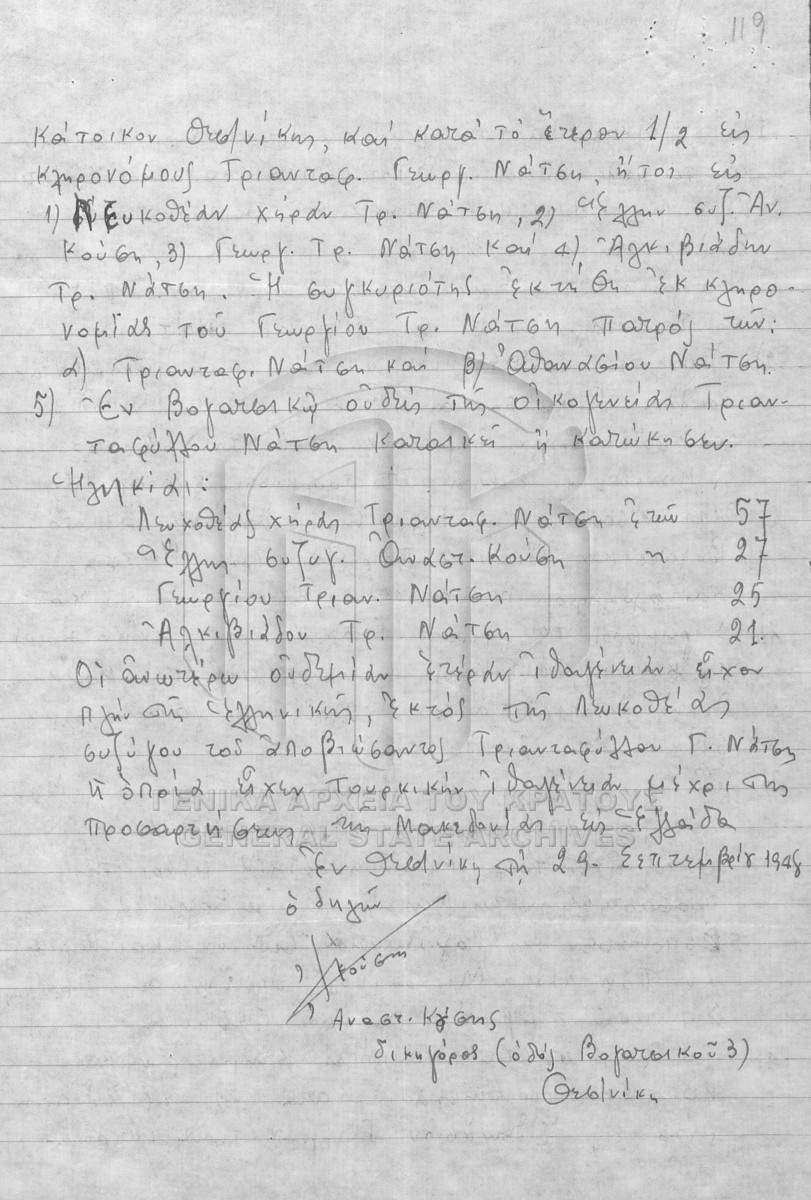 119
κάτοικον Θεσ/νίκης, καί κατά τό ἕτερον 1/2 εἰς
κληρονόμους Τριανταφ. Γεωργ. Νάτση, ἤτοι εἰς
1) Λευκοθέαν χήραν Τρ. Νάτση, 2) Ἕλλην συζ. Ἀν.
Κούση, 3) Γεωργ. Τρ. Νάτση καί 4) Ἀλκιβιάδην
Τρ. Νάτση. Ἡ συγκυριότης ἐκτήθη ἐκ κληρο-
νομίας τοῦ Γεωργίου Τρ. Νάτση πατρός των:
α) Τριανταφ. Νάτση καί β) Ἀθανασίου Νάτση.
5) Ἐν Βογατσικῷ οὐδείς τῆς οἰκογενείας Τριαν-
ταφύλλου Νάτση κατοικεῖ ἤ κατώκησεν.
Ἡλικίαι:
Λευκοθέας χήρας Τριανταφ. Νάτση ἐτῶν 57
Ἕλλης συζυγ. Ἀναστ. Κούση " 27
Γεωργίου Τριαν. Νάτση 25
Ἀλκιβιάδου Τρ. Νάτση 21.
Οἱ ἀνωτέρω οὐδεμίαν ἑτέραν ἰθαγένειαν εἶχον
πλήν τῆς ἑλληνικῆς, ἐκτός τῆς Λευκοθέας
συζύγου τοῦ ἀποβιώσαντος Τριανταφύλλου Γ. Νάτση
ἡ ὁποία εἶχεν Τουρκικήν ἰθαγένειαν μέχρι τῆς
προσαρτήσεως τῆς Μακεδονίας εἰς Ἑλλάδα
Ἐν Θεσ/νίκῃ τῇ 29. Σεπτεμβρίου 1948
ὁ δηλῶν
Κούσης
Αναστ. Κούσης
δικηγόρος (ὁδός Βογατσικοῦ 3)
Θεσ/νίκη
ΓΕΝΙΚΑ ΑΡΧΕΙΑ ΤΟΥ ΚΡΑΤΟΥΣ
GENERAL STATE ARCHIVES